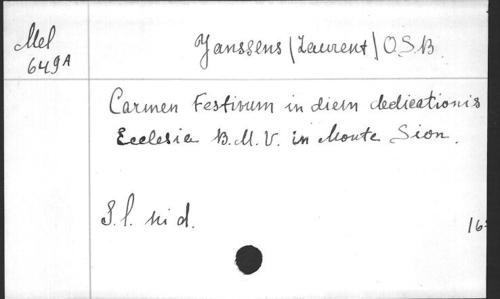 Mel
649A
Janssens (Laurent) O.S.B.
Carmen Festivum in diem dedicationis
Ecclesia B.M.V. in Monte Sion.
S.l. ni d.
16°